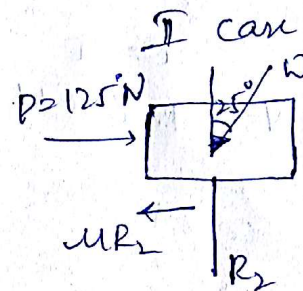 II case
W
P=125N
25°
μR₂
R₂